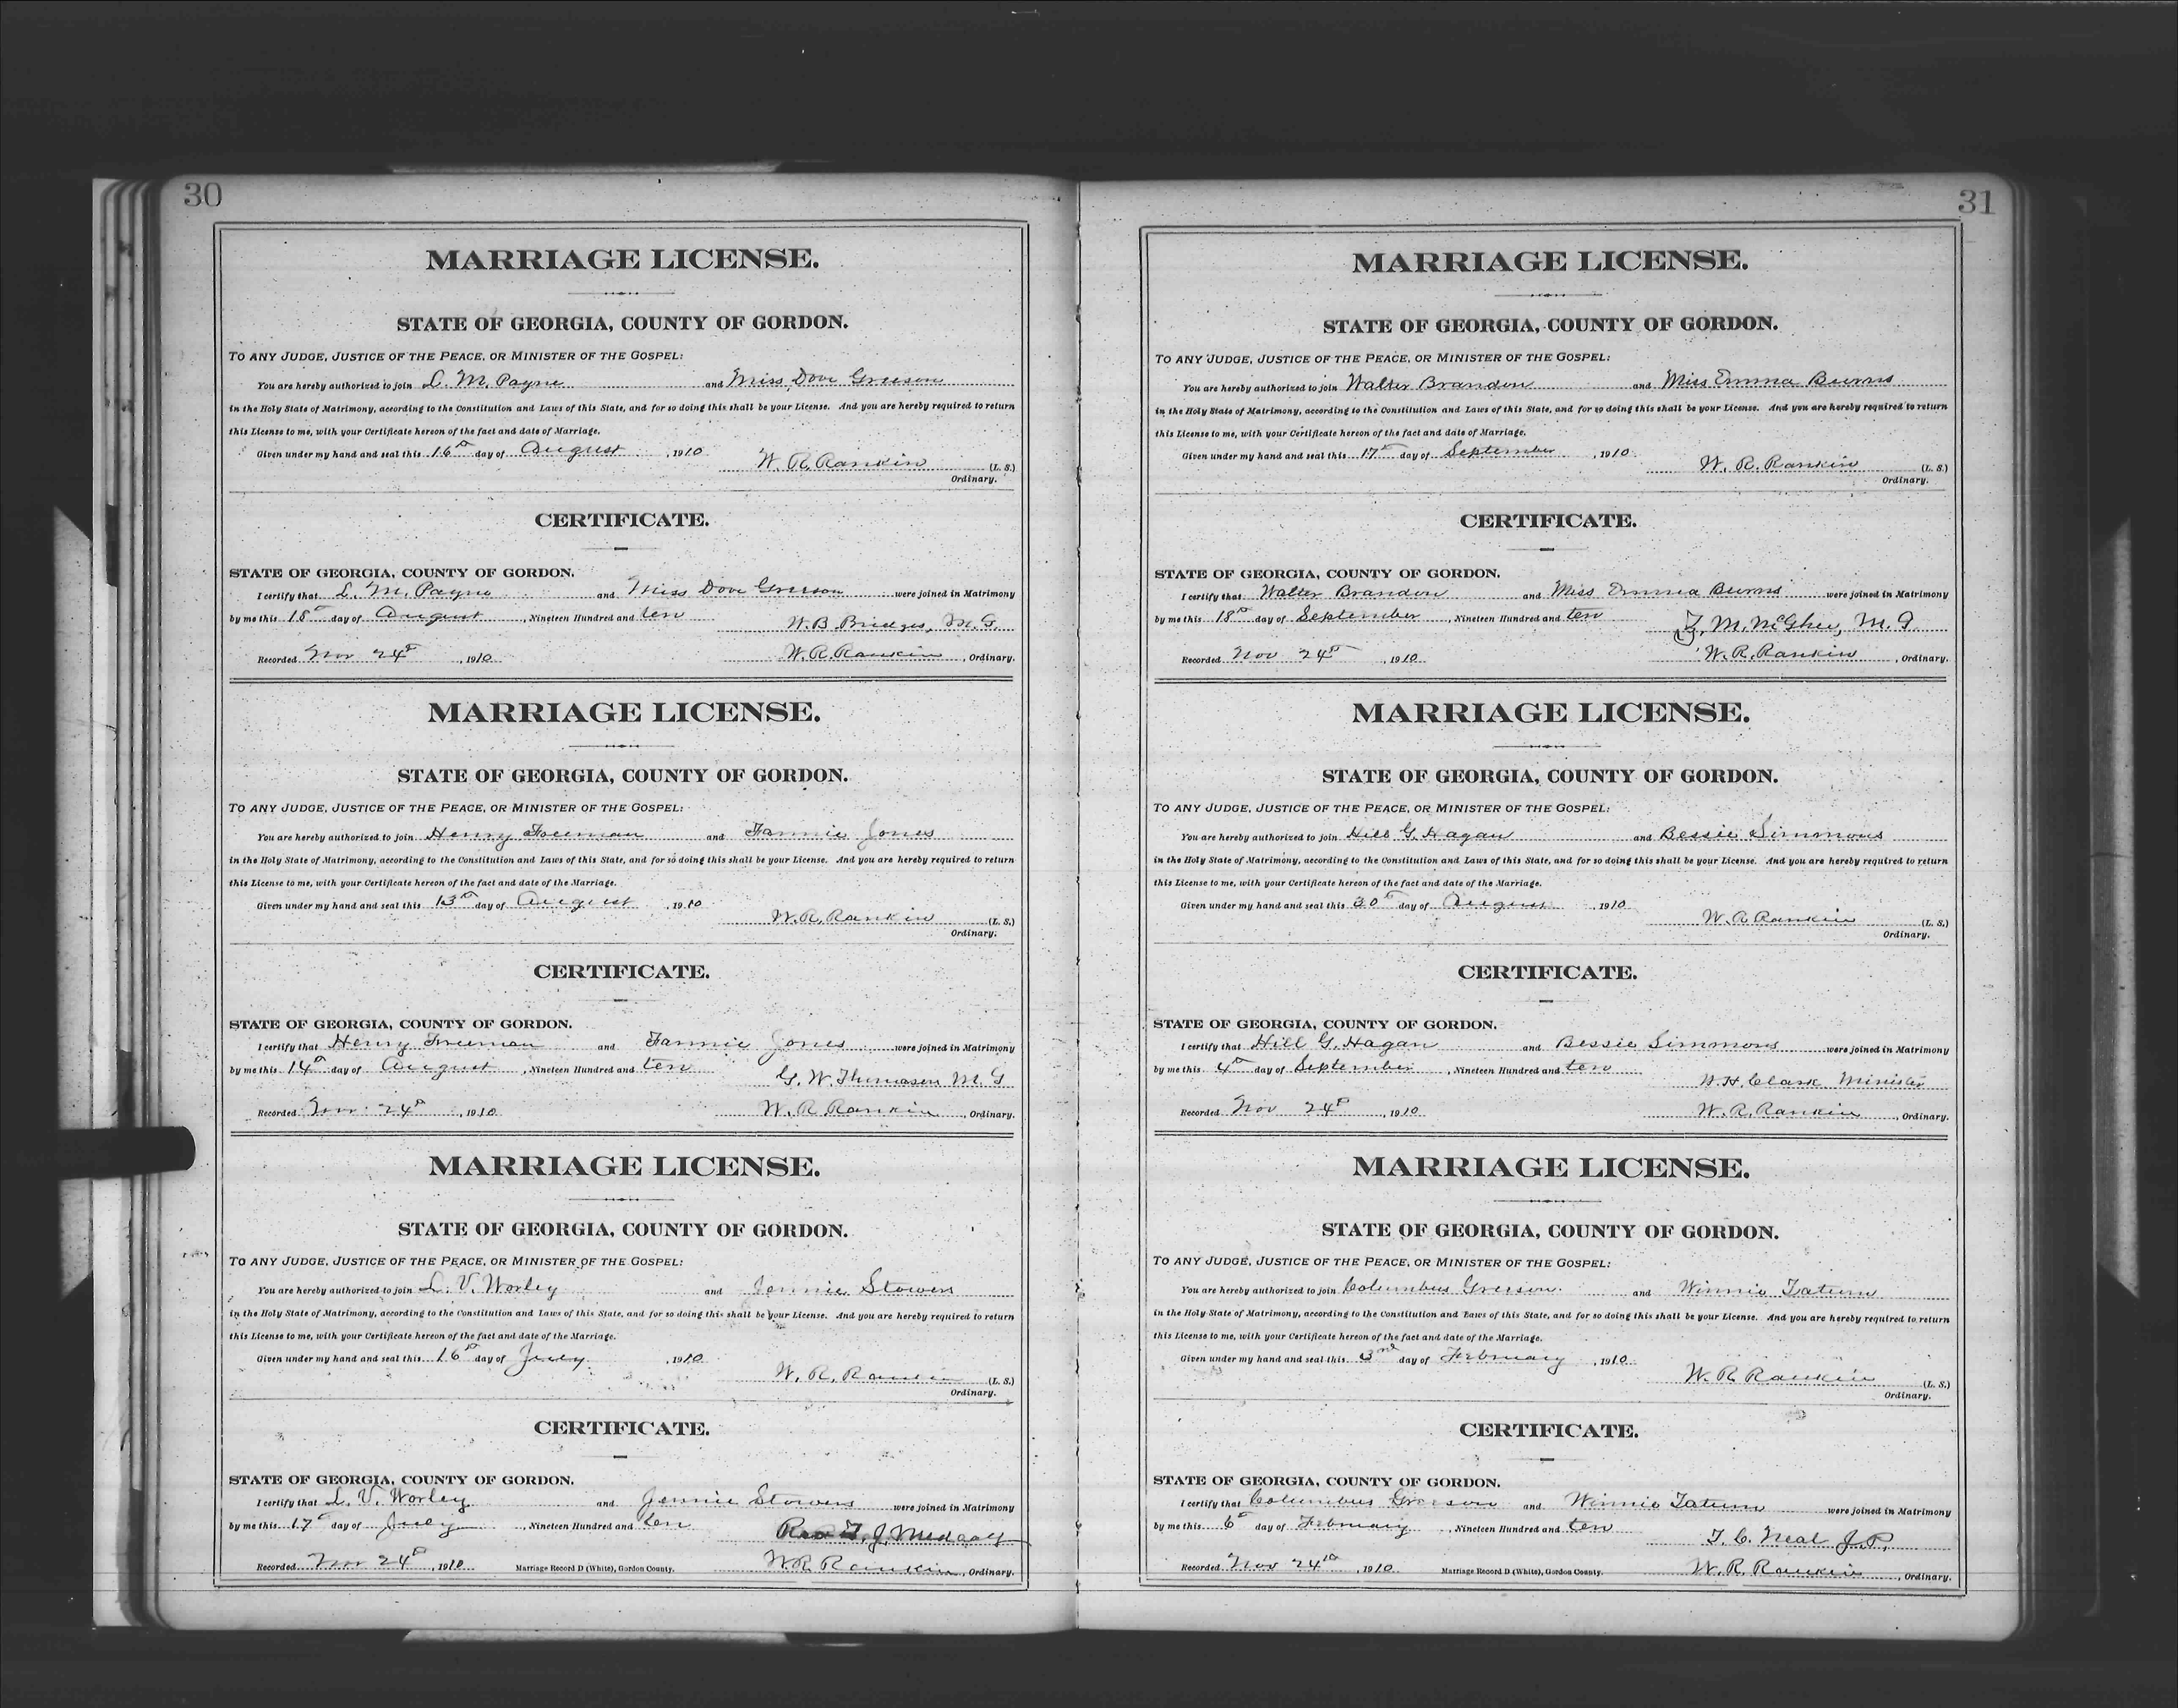 30
MARRIAGE LICENSE.
STATE OF GEORGIA, COUNTY OF GORDON.
TO ANY JUDGE, JUSTICE OF THE PEACE, OR MINISTER OF THE GOSPEL:
You are hereby authorized to join L. M. Payne and Miss Dove Greeson
in the Holy State of Matrimony, according to the Constitution and Laws of this State, and for so doing this shall be your License. And you are hereby required to return
this License to me, with your Certificate hereon of the fact and date of Marriage.
Given under my hand and seal this 16th day of August, 1910
W. R. Rankin (L. S.)
Ordinary.
CERTIFICATE.
STATE OF GEORGIA, COUNTY OF GORDON.
I certify that L. M. Payne and Miss Dove Greeson were joined in Matrimony
by me this 18th day of August, Nineteen Hundred and ten
W. B. Bridges, M. G.
Recorded Nov 24th, 1910 W. R. Rankin, Ordinary.
MARRIAGE LICENSE.
STATE OF GEORGIA, COUNTY OF GORDON.
TO ANY JUDGE, JUSTICE OF THE PEACE, OR MINISTER OF THE GOSPEL:
You are hereby authorized to join Henry Freeman and Fannie Jones
in the Holy State of Matrimony, according to the Constitution and Laws of this State, and for so doing this shall be your License. And you are hereby required to return
this License to me, with your Certificate hereon of the fact and date of the Marriage.
Given under my hand and seal this 13th day of August, 1910
W. R. Rankin (L. S.)
Ordinary.
CERTIFICATE.
STATE OF GEORGIA, COUNTY OF GORDON.
I certify that Henry Freeman and Fannie Jones were joined in Matrimony
by me this 14th day of August, Nineteen Hundred and ten
G. W. Thomason M. G
Recorded Nov. 24th, 1910 W. R. Rankin, Ordinary.
MARRIAGE LICENSE.
STATE OF GEORGIA, COUNTY OF GORDON.
TO ANY JUDGE, JUSTICE OF THE PEACE, OR MINISTER OF THE GOSPEL:
You are hereby authorized to join L. V. Worley and Jennie Stowers
in the Holy State of Matrimony, according to the Constitution and Laws of this State, and for so doing this shall be your License. And you are hereby required to return
this License to me, with your Certificate hereon of the fact and date of the Marriage.
Given under my hand and seal this 16th day of July, 1910
W. R. Rankin (L. S.)
Ordinary.
CERTIFICATE.
STATE OF GEORGIA, COUNTY OF GORDON.
I certify that L. V. Worley and Jennie Stowers were joined in Matrimony
by me this 17th day of July, Nineteen Hundred and ten
Rev T. J. Medcalf
Recorded Nov 24th, 1910 Marriage Record D (White), Gordon County. W. R. Rankin, Ordinary.
31
MARRIAGE LICENSE.
STATE OF GEORGIA, COUNTY OF GORDON.
TO ANY JUDGE, JUSTICE OF THE PEACE, OR MINISTER OF THE GOSPEL:
You are hereby authorized to join Walter Brandon and Miss Emma Burns
in the Holy State of Matrimony, according to the Constitution and Laws of this State, and for so doing this shall be your License. And you are hereby required to return
this License to me, with your Certificate hereon of the fact and date of Marriage.
Given under my hand and seal this 17th day of September, 1910
W. R. Rankin (L. S.)
Ordinary.
CERTIFICATE.
STATE OF GEORGIA, COUNTY OF GORDON.
I certify that Walter Brandon and Miss Emma Burns were joined in Matrimony
by me this 18th day of September, Nineteen Hundred and ten
M. McGhee, M. G.
Recorded Nov 24th, 1910 W. R. Rankin, Ordinary.
MARRIAGE LICENSE.
STATE OF GEORGIA, COUNTY OF GORDON.
TO ANY JUDGE, JUSTICE OF THE PEACE, OR MINISTER OF THE GOSPEL:
You are hereby authorized to join Hill G. Hagan and Bessie Simmons
in the Holy State of Matrimony, according to the Constitution and Laws of this State, and for so doing this shall be your License. And you are hereby required to return
this License to me, with your Certificate hereon of the fact and date of the Marriage.
Given under my hand and seal this 30th day of August, 1910
W. R Rankin (L. S.)
Ordinary.
CERTIFICATE.
STATE OF GEORGIA, COUNTY OF GORDON.
I certify that Hill G. Hagan and Bessie Simmons were joined in Matrimony
by me this 4th day of September, Nineteen Hundred and ten
W. H. Clark Minister
Recorded Nov 24th, 1910 W. R. Rankin, Ordinary.
MARRIAGE LICENSE.
STATE OF GEORGIA, COUNTY OF GORDON.
TO ANY JUDGE, JUSTICE OF THE PEACE, OR MINISTER OF THE GOSPEL:
You are hereby authorized to join Columbus Greeson and Winnie Tatum
in the Holy State of Matrimony, according to the Constitution and Laws of this State, and for so doing this shall be your License. And you are hereby required to return
this License to me, with your Certificate hereon of the fact and date of the Marriage.
Given under my hand and seal this 3rd day of February, 1910
W. R Rankin (L. S.)
Ordinary.
CERTIFICATE.
STATE OF GEORGIA, COUNTY OF GORDON.
I certify that Columbus Greeson and Winnie Tatum were joined in Matrimony
by me this 6th day of February, Nineteen Hundred and ten
T. C. Neal J. P.
Recorded Nov 24th, 1910 Marriage Record D (White), Gordon County. W. R. Rankin, Ordinary.